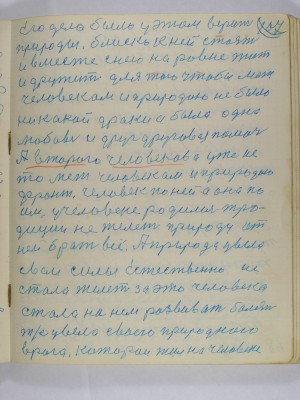 Его дело было у этом верит
природы. близок к ней стоят
и вместе с нею на ровне жит
и дружит для того чтобы меж
человекам и природаю не было
никакой драки а была одна
любовь и друг другавая помач
А второго человекова уже не
то меж человекам и природаю
фронт. человек по ней а она по
им, у человека родился тра
диции не желет природу от
ней брат всё. А природа увела
свои силы Естественно не
стала желет за это человека
стала на нем развиват болят
ку увела своего природнаго
врага. Катораи жил на человеке